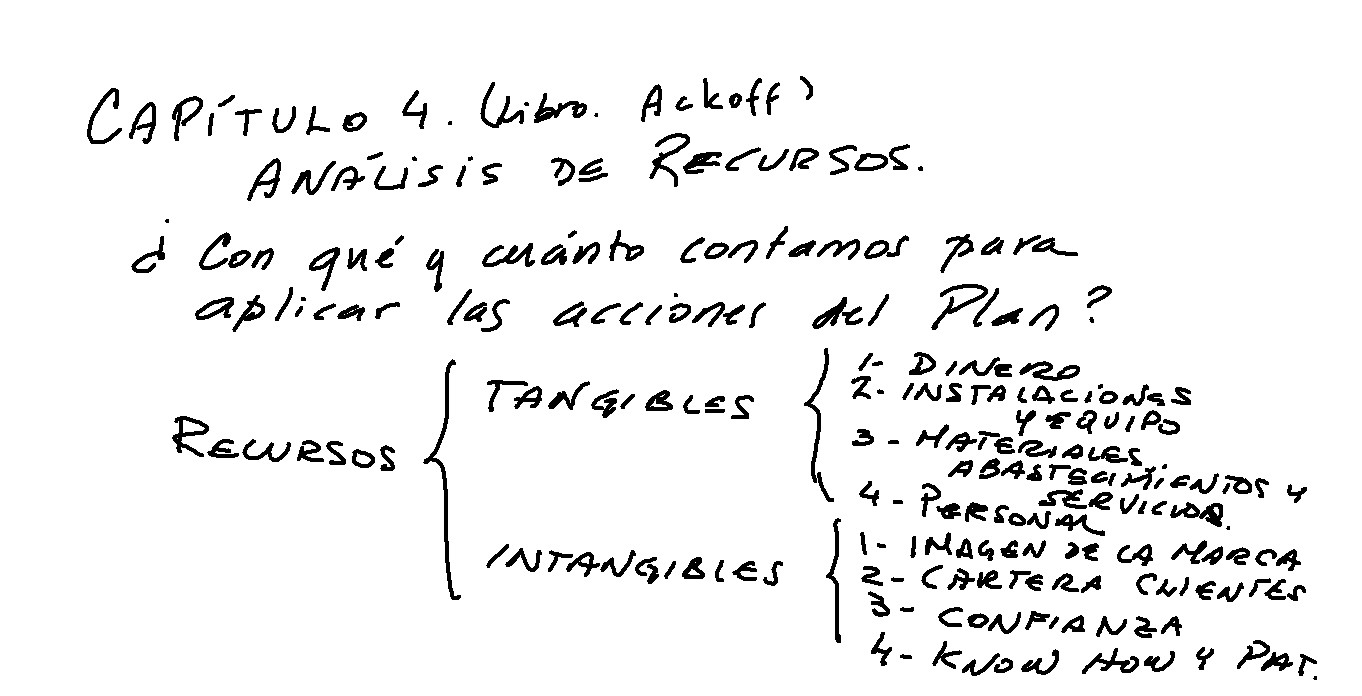 CAPÍTULO 4. (Libro. Ackoff)
ANÁLISIS DE RECURSOS.
¿Con qué y cuánto contamos para
aplicar las acciones del Plan?
RECURSOS
TANGIBLES
1- DINERO
2- INSTALACIONES
Y EQUIPO
3- MATERIALES,
ABASTECIMIENTOS Y
SERVICIOS.
4- PERSONAL
INTANGIBLES
1- IMAGEN DE LA MARCA
2- CARTERA CLIENTES
3- CONFIANZA
4- KNOW HOW Y PAT.